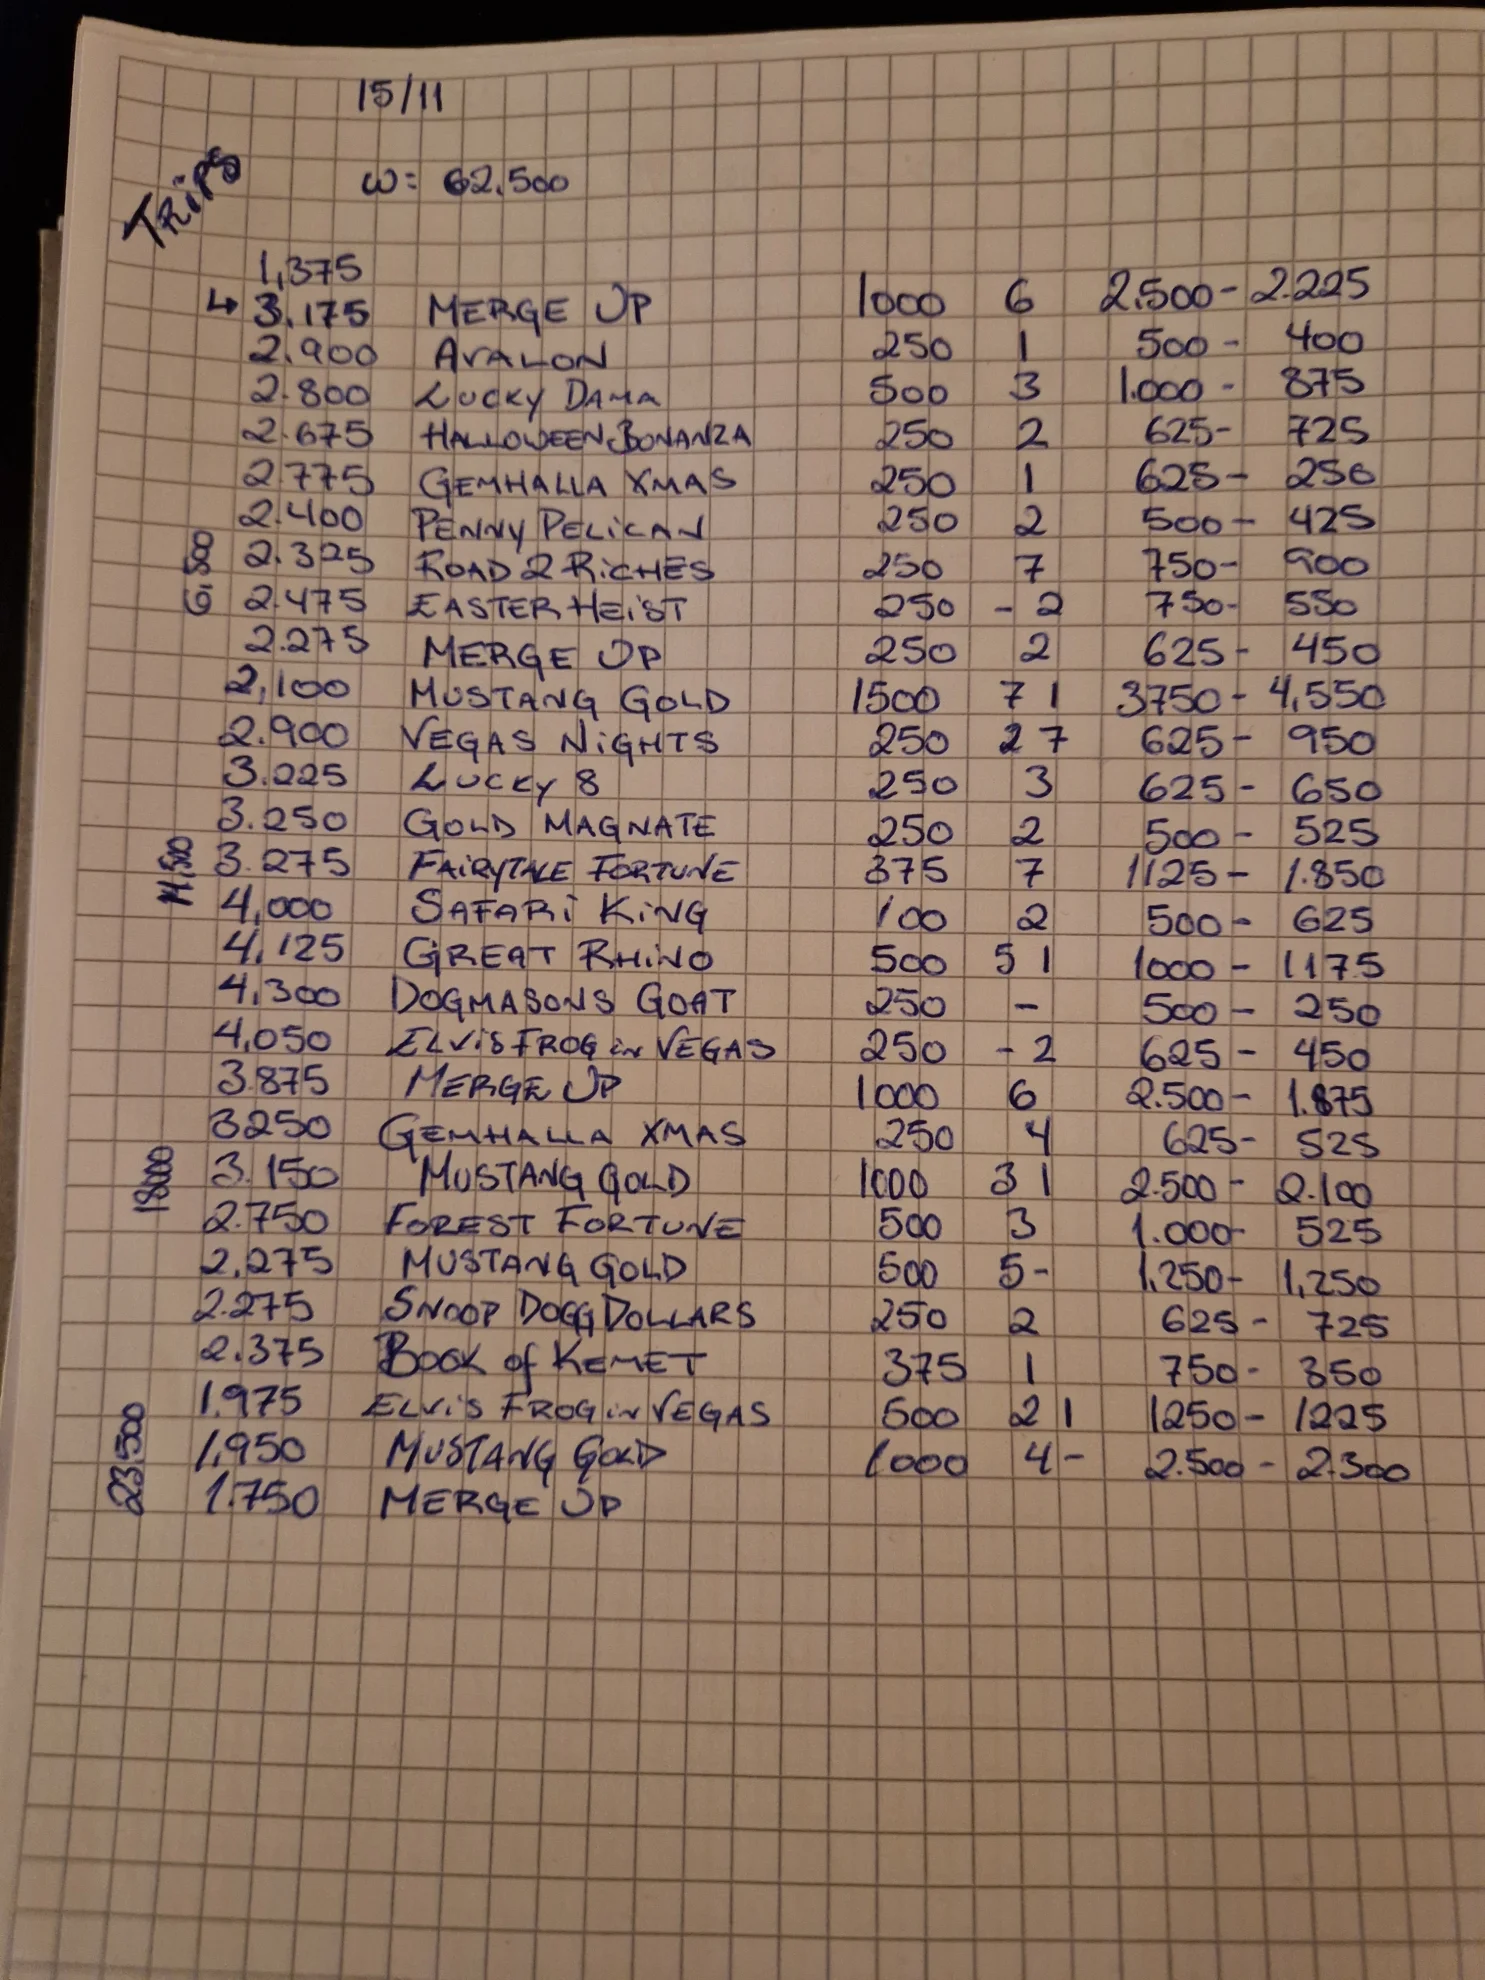 15/11
TRiPS
W= 62.500
1,375
↳ 3.175 MERGE UP 1000 6 2.500- 2.225
2.900 AVALON 250 1 500- 400
2.800 LUCKY DAMA 500 3 1.000- 875
2.675 HALLOWEEN BONANZA 250 2 625- 725
2.775 GEMHALLA XMAS 250 1 625- 250
2.400 PENNY PELiCAN 250 2 500- 425
2.325 ROAD 2 RiCHES 250 7 750- 900
2.475 EASTER HEiST 250 - 2 750- 550
2.275 MERGE UP 250 2 625- 450
2,100 MUSTANG GOLD 1500 7 1 3750- 4,550
2.900 VEGAS NiGHTS 250 2 7 625- 950
3.225 LUCKY 8 250 3 625- 650
3.250 GOLD MAGNATE 250 2 500- 525
3.275 FAiRYTALE FORTUNE 375 7 1125- 1.850
4,000 SAFARi KiNG 100 2 500- 625
4,125 GREAT RHiNO 500 5 1 1000- 1175
4,300 DOGMASONS GOAT 250 - 500- 250
4,050 ELViS FROG in VEGAS 250 - 2 625- 450
3.875 MERGE UP 1000 6 2.500- 1.875
3250 GEMHALLA XMAS 250 4 625- 525
3.150 MUSTANG GOLD 1000 3 1 2.500- 2.100
2.750 FOREST FORTUNE 500 3 1.000- 525
2.275 MUSTANG GOLD 500 5- 1,250- 1,250
2.275 SNOOP DOGG DOLLARS 250 2 625- 725
2.375 BOOK of KEMET 375 1 750- 350
1.975 ELViS FROG in VEGAS 500 2 1 1250- 1225
1,950 MUSTANG GOLD 1000 4- 2.500- 2.300
1.750 MERGE UP
18000
23.500